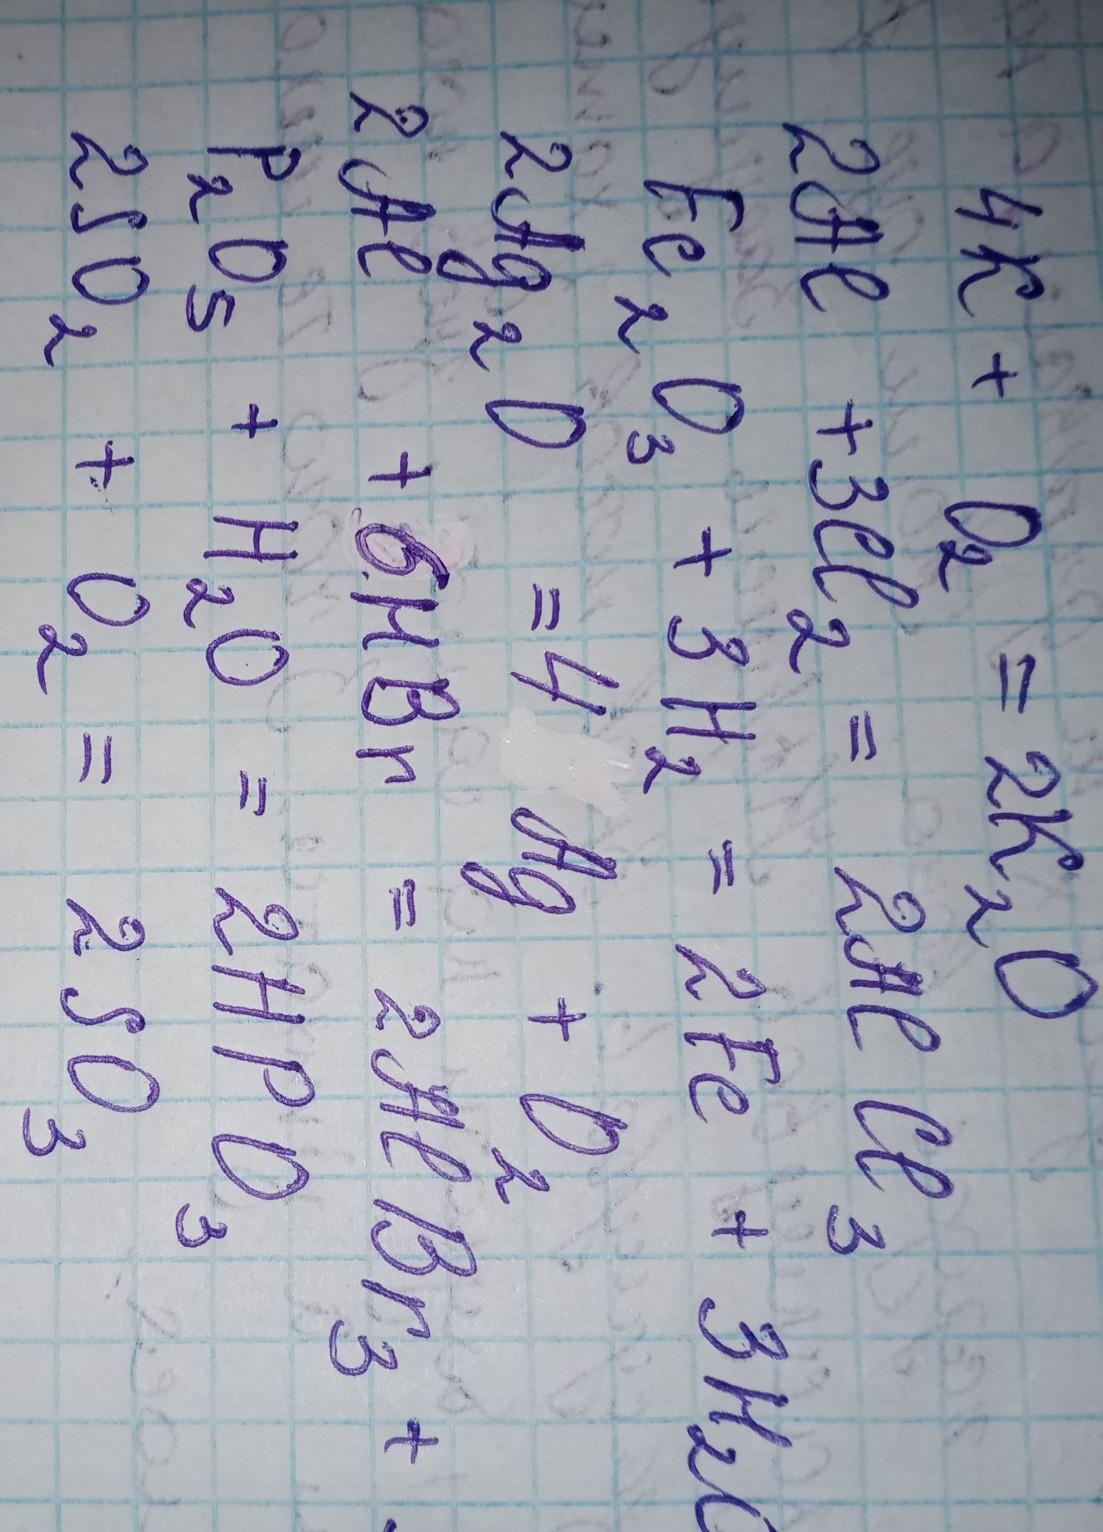 4K + O₂ = 2K₂O
2Al + 3Cl₂ = 2AlCl₃
Fe₂O₃ + 3H₂ = 2Fe + 3H₂O
2Ag₂O = 4Ag + O₂
2Al + 6HBr = 2AlBr₃ +
P₂O₅ + H₂O = 2HPO₃
2SO₂ + O₂ = 2SO₃